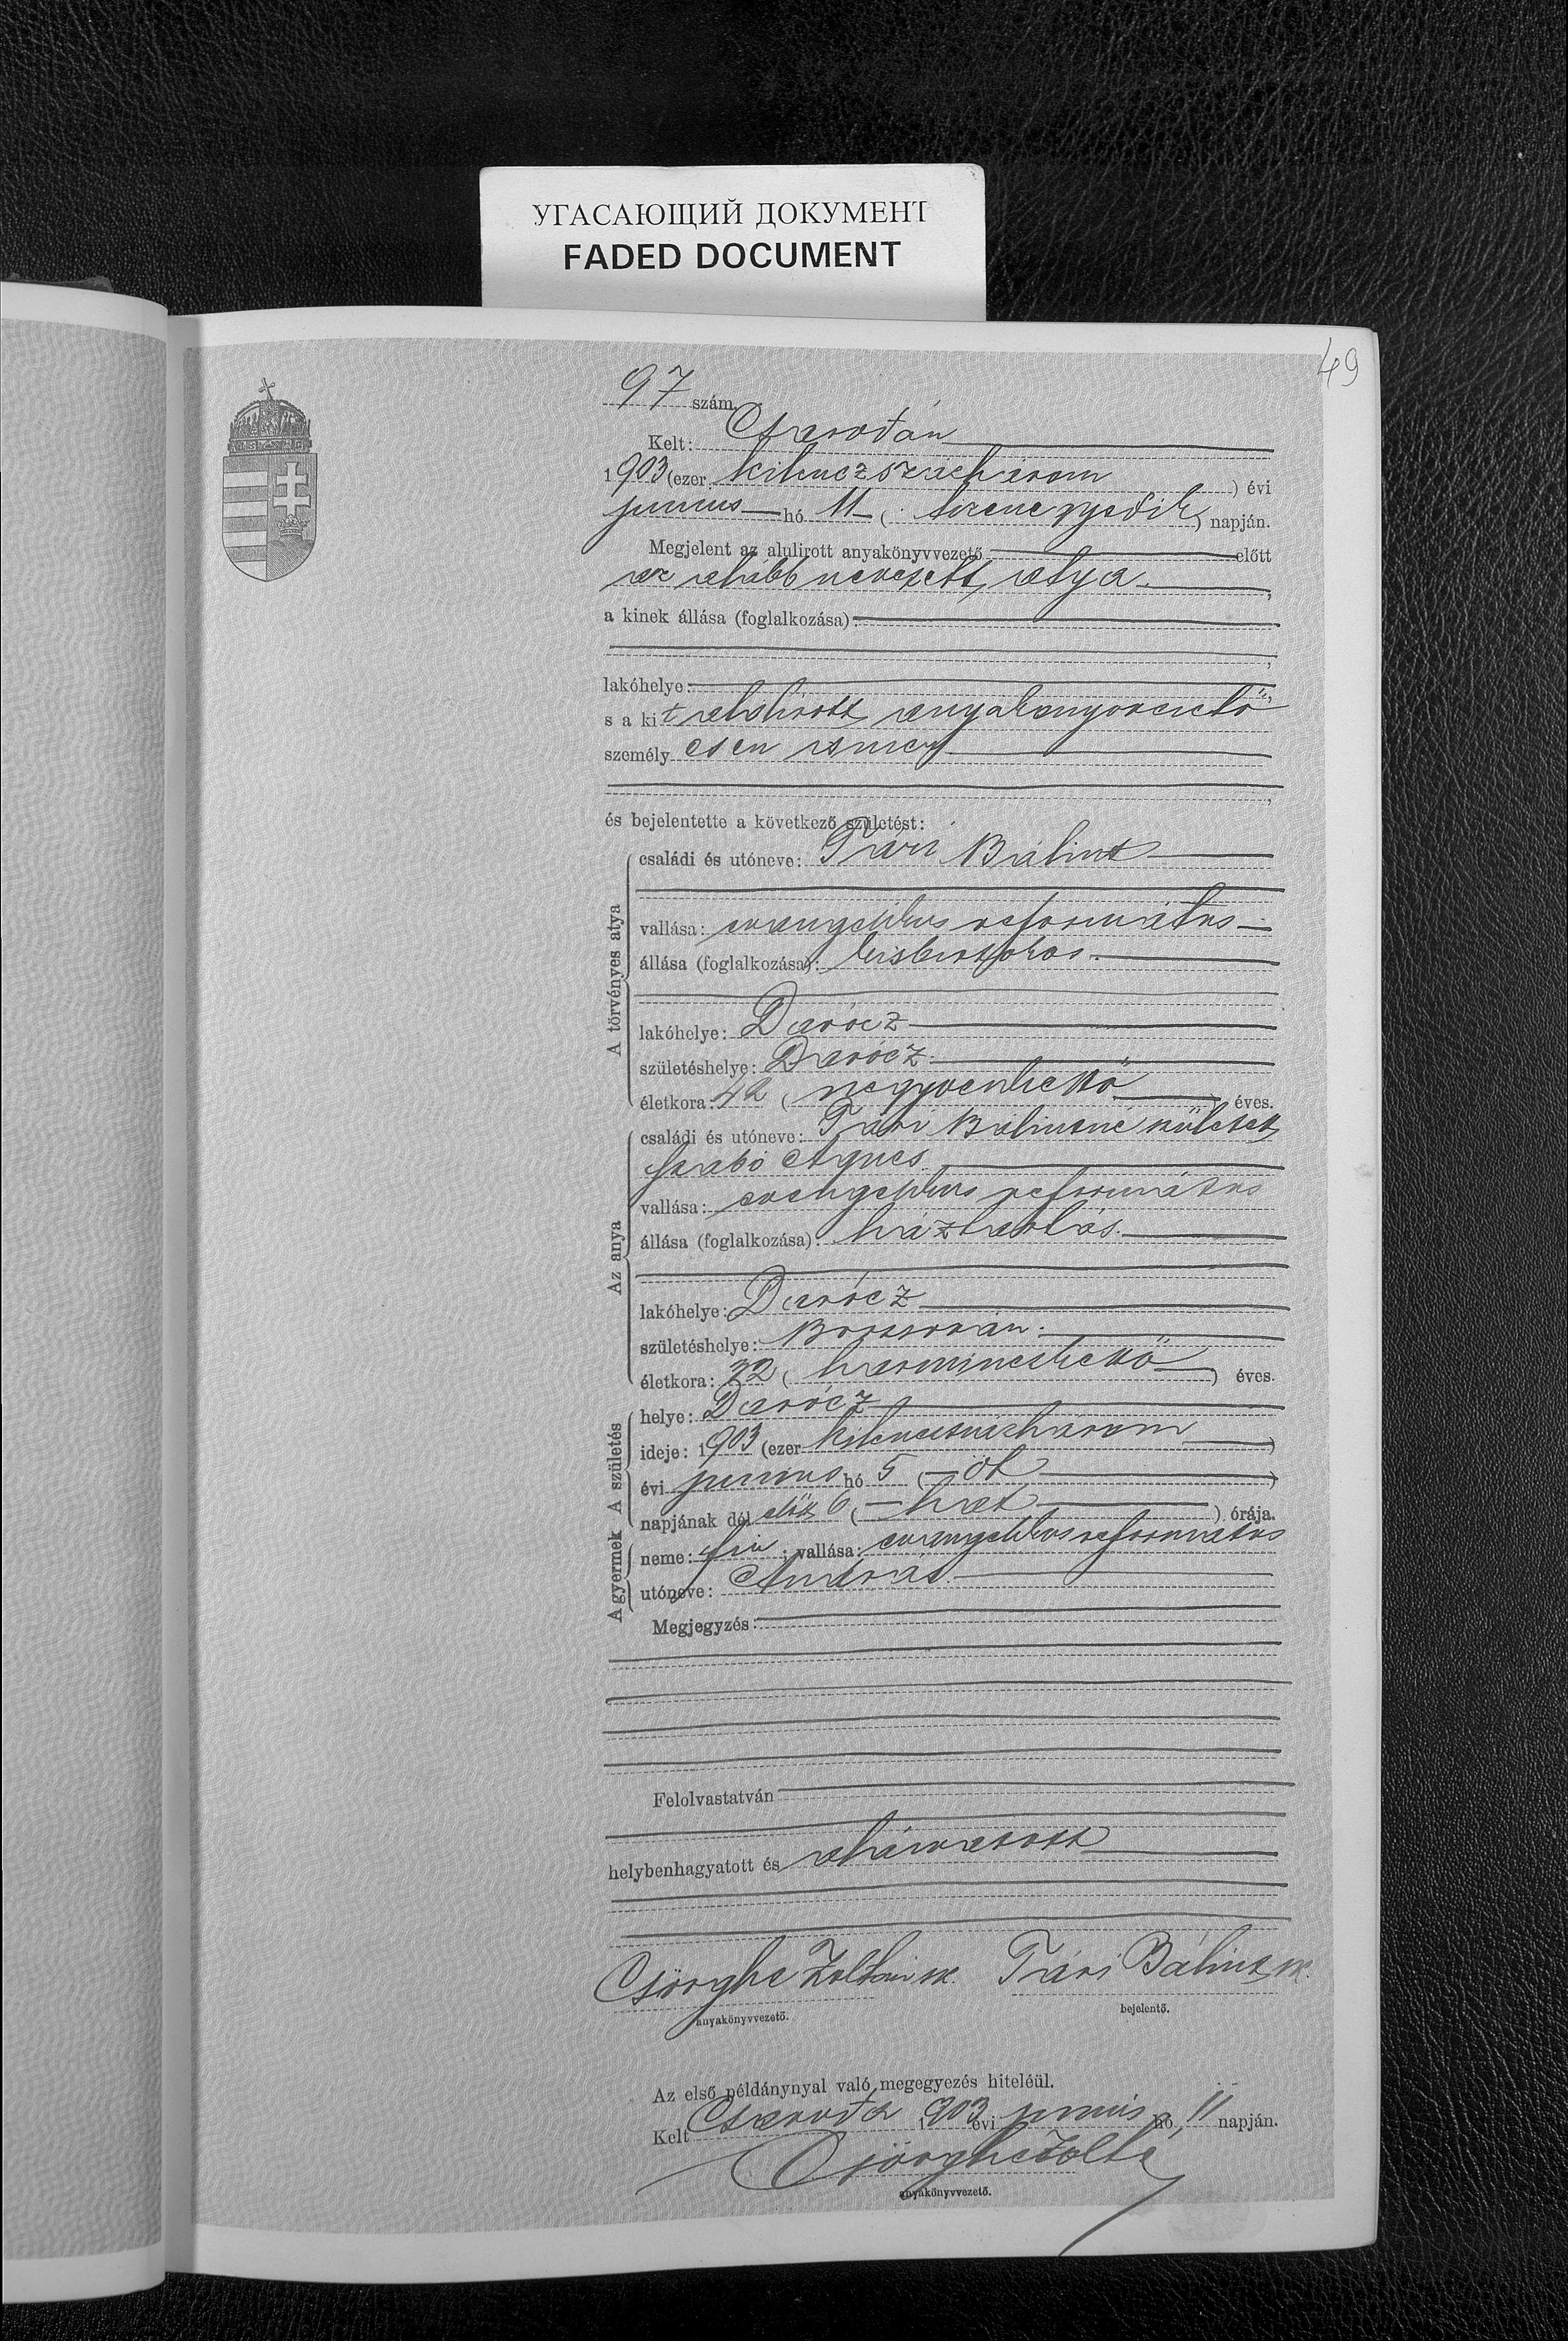 УГАСАЮЩИЙ ДОКУМЕНТ
FADED DOCUMENT
49
97 szám.
Kelt: Csarodán
1903 (ezer kilenczszázhárom) évi
junius hó 11 (tizenegyedik) napján.
Megjelent az alulirott anyakönyvvezető előtt
az alább nevezett atya,
a kinek állása (foglalkozása):
lakóhelye:
s a kit alulirott anyakönyvvezető
személyesen ismer,
és bejelentette a következő születést:
A törvényes atya
családi és utóneve: Tári Bálint
vallása: evangelikus református
állása (foglalkozása): kisbirtokos.
lakóhelye: Darócz
születéshelye: Darócz
életkora: 42 (negyvenkettő) éves.
Az anya
családi és utóneve: Tári Bálintné született
Szabó Ágnes
vallása: evangelikus református
állása (foglalkozása): háztartás.
lakóhelye: Darócz
születéshelye:
életkora: 32 (harminczkettő) éves.
A születés
helye: Darócz
ideje: 1903 (ezer kilenczszázhárom)
évi junius hó 5 (öt)
napjának dél előtt 6 (hat) órája.
A gyermek
neme: fiu; vallása: evangelikus református
utóneve: András.
Megjegyzés:
Felolvastatván
helybenhagyatott és aláiratott
Györghe Zoltán sk. Tári Bálint sk.
anyakönyvvezető. bejelentő.
Az első példánynyal való megegyezés hiteléül.
Kelt Csaroda 1903 évi junius hó 11 napján.
Györghe Zoltán
anyakönyvvezető.